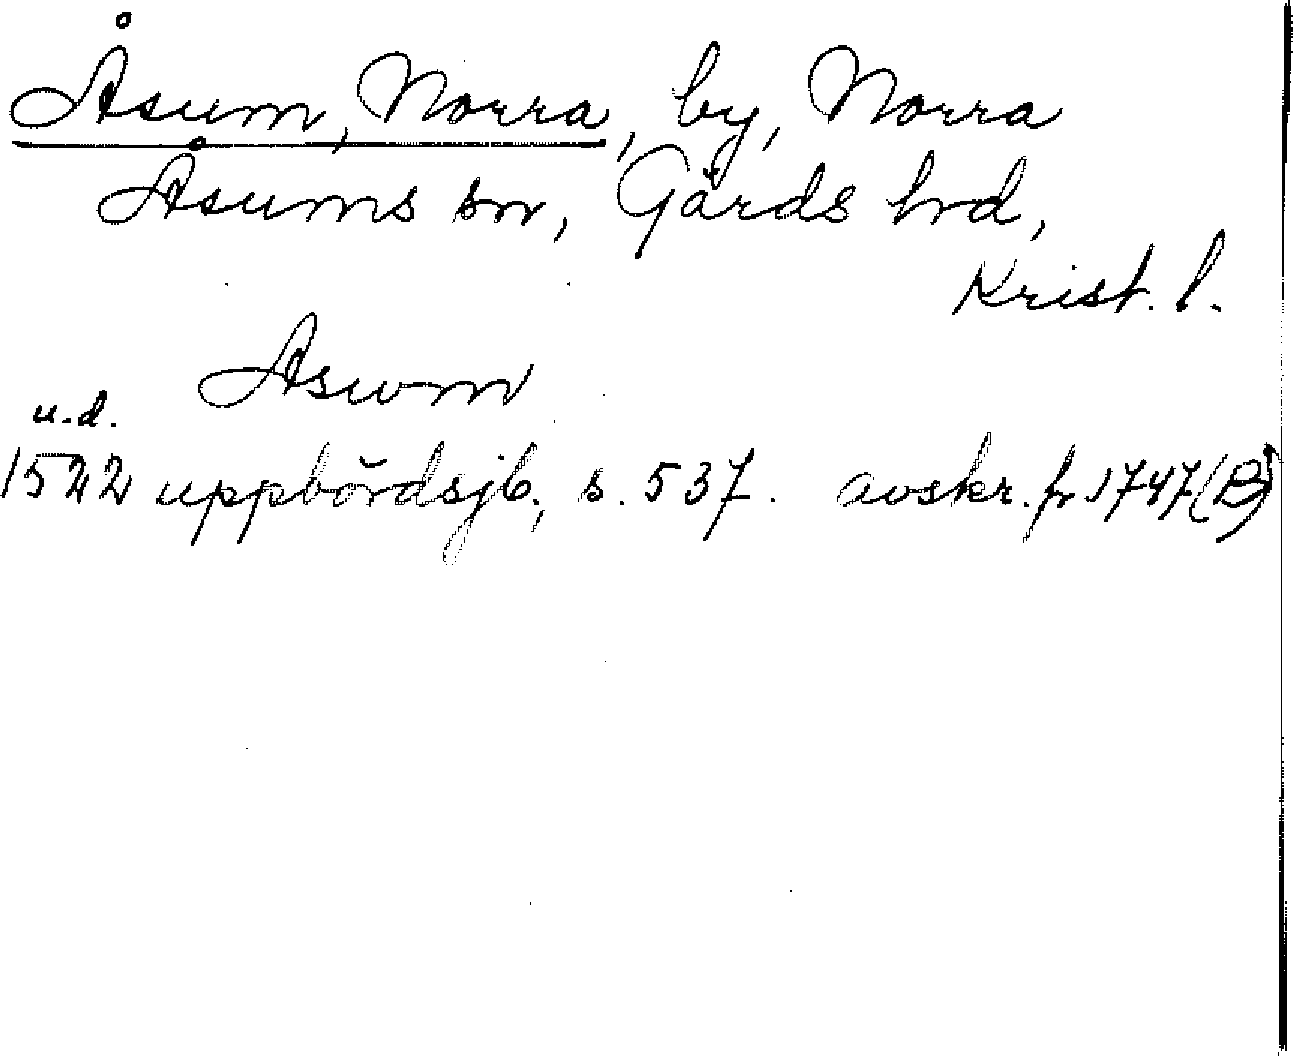 Åsum, Norra, by, Norra
Åsums sn, Gärds hrd,
Krist. l.
Aswm
u.d.
1522 uppbördsjb., s. 537. avskr. fr 1747 (B)